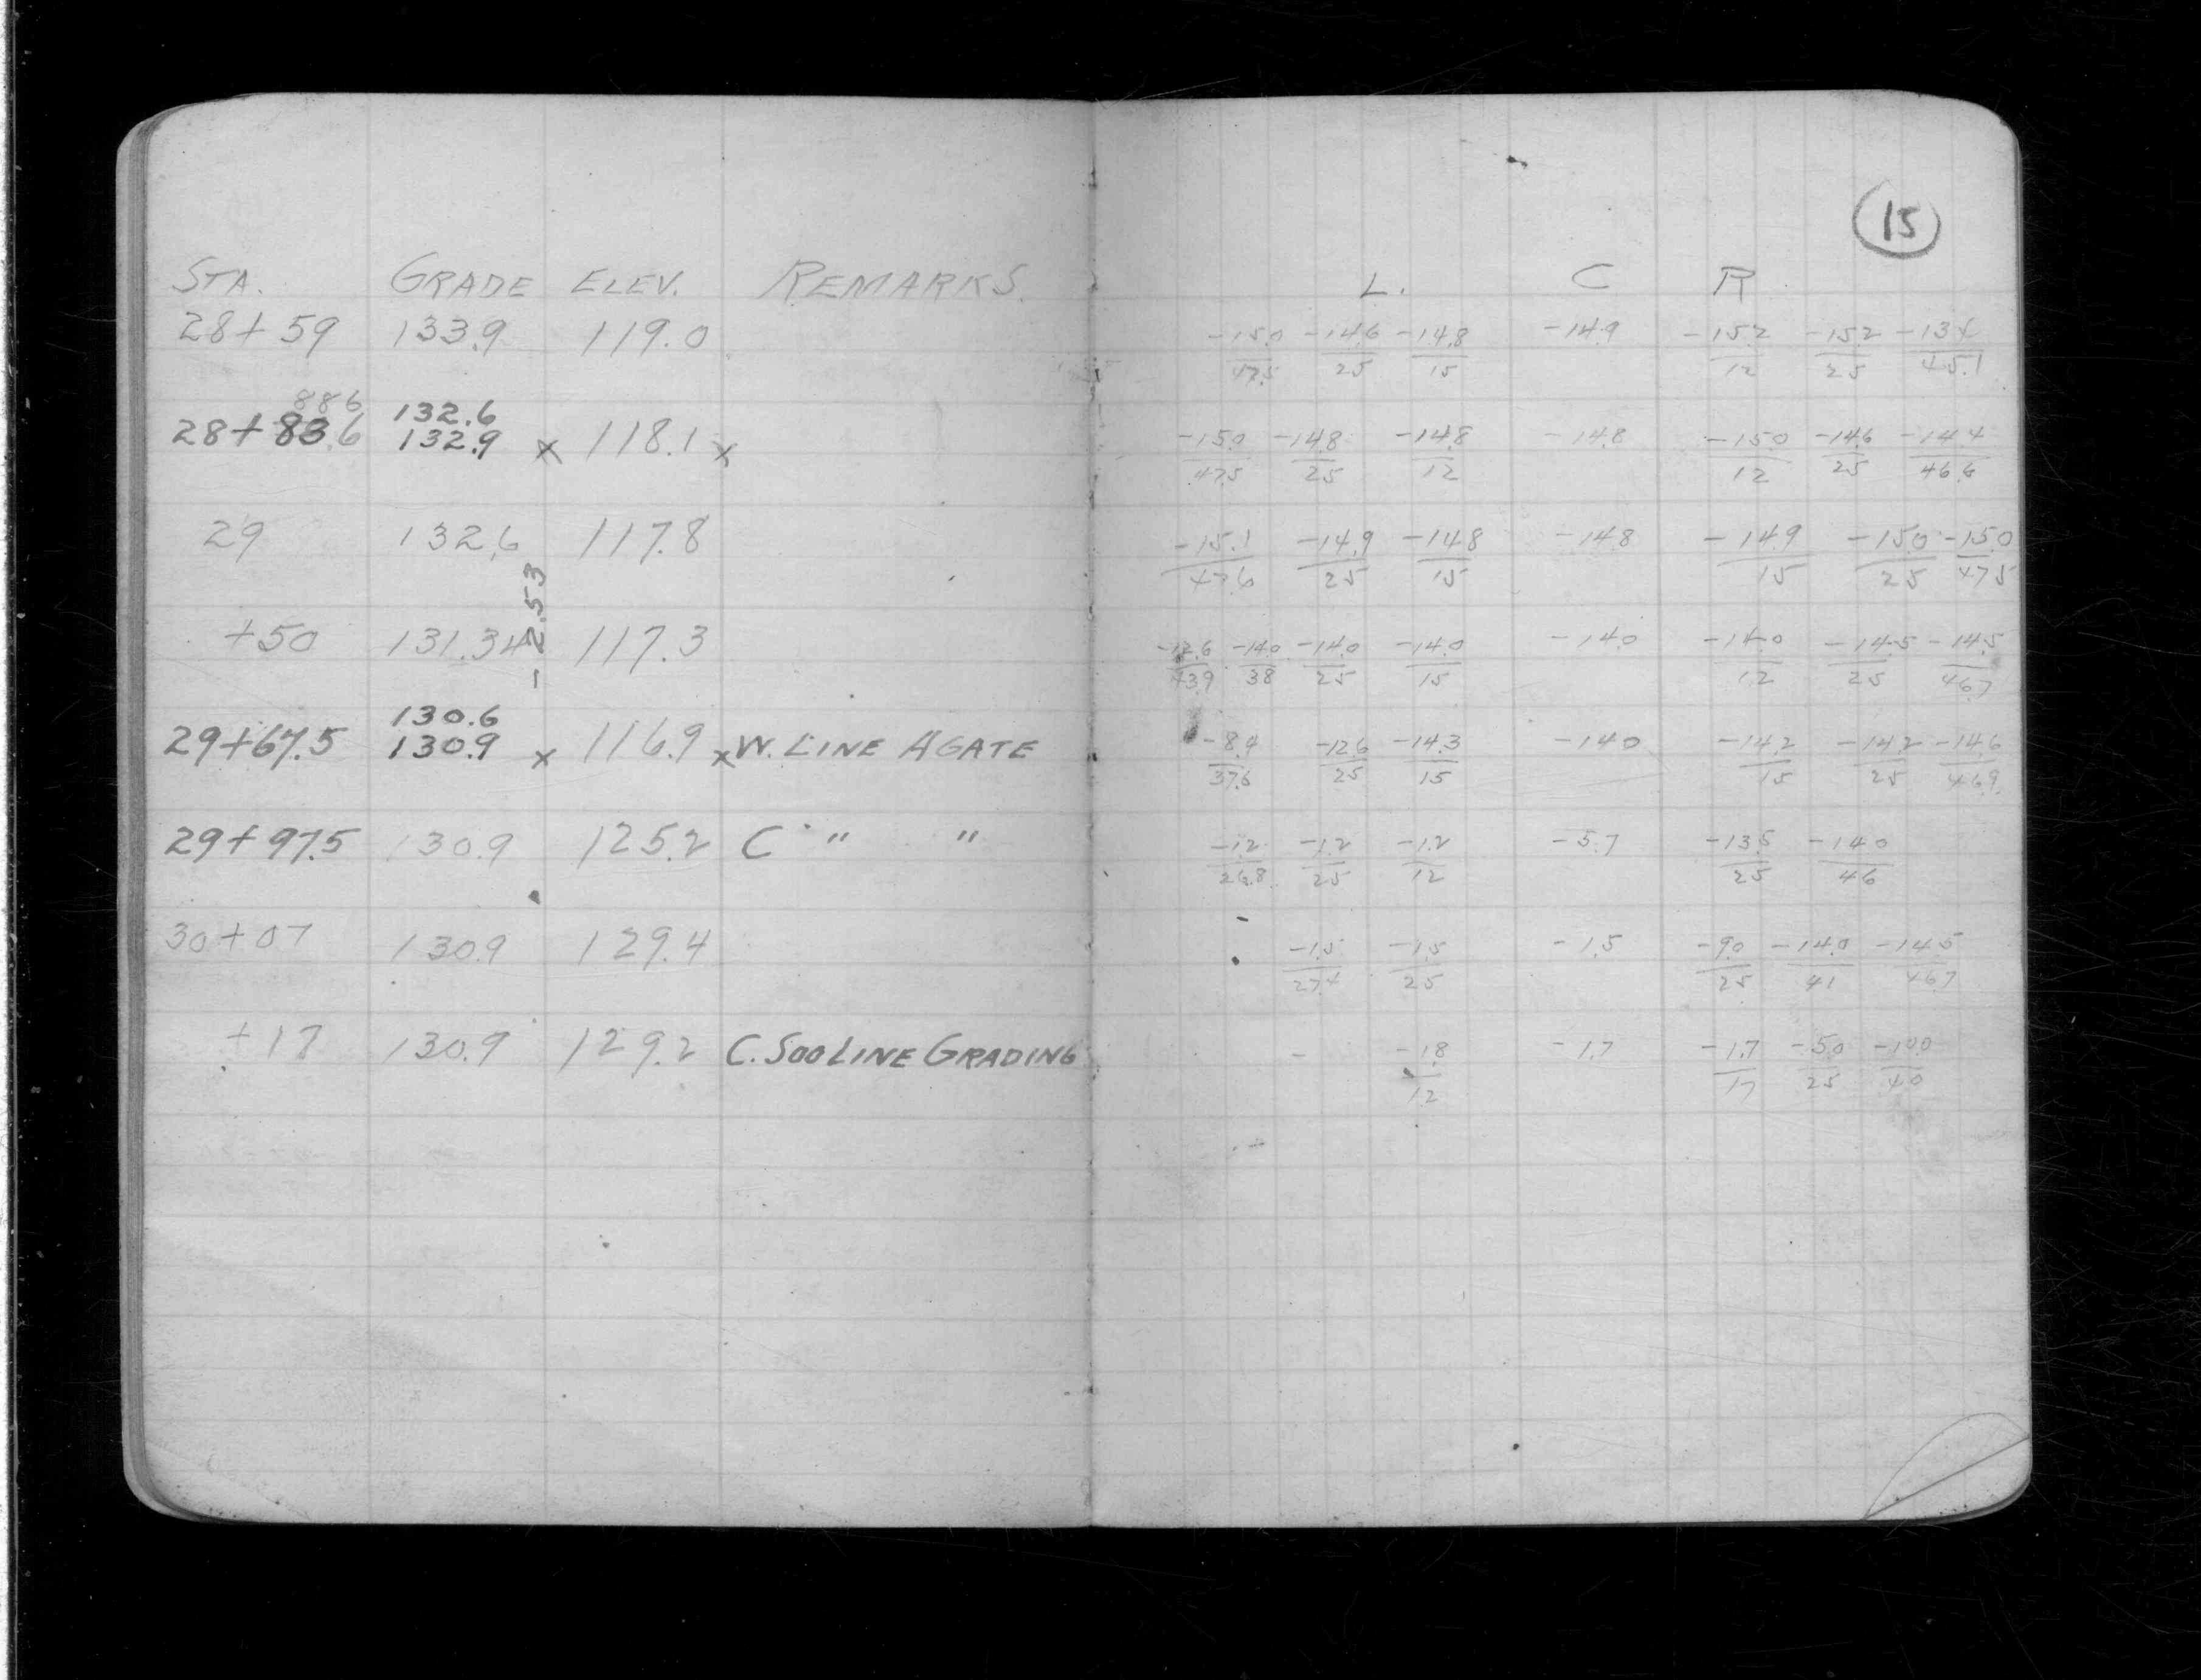 15
STA. GRADE ELEV. REMARKS. L. C R
28+59 133.9 119.0 -15.0 -14.6 -14.8 -14.9 -15.2 -15.2
47.5 25 15 12 25 45.1
886 132.6
28+83.6 132.9 x 118.1 x -15.0 -14.8 -14.8 -14.8 -15.0 -14.6 -14.4
47.5 25 12 12 25 46.6
29 132.6 117.8 -15.1 -14.9 -14.8 -14.8 -14.9 -15.0 -15.0
47.6 25 15 15 25 47.5
-2.53
+50 131.34 117.3 -12.6 -14.0 -14.0 -14.0 -14.0 -14.0 -14.5 -14.5
43.9 38 25 15 12 25 46.7
130.6
29+67.5 130.9 x 116.9 x W. LINE AGATE -8.4 -12.6 -14.3 -14.0 -14.2 -14.2 -14.6
37.6 25 15 15 25 46.9
29+97.5 130.9 125.2 C " " -1.2 -1.2 -1.2 -5.7 -13.5 -14.0
26.8 25 12 25 46
30+07 130.9 129.4 -1.5 -1.5 -1.5 -9.0 -14.0 -14.5
27.4 25 25 41 46.7
+17 130.9 129.2 C. SOO LINE GRADING - -1.8 -1.7 -1.7 -5.0 -10.0
12 17 25 40